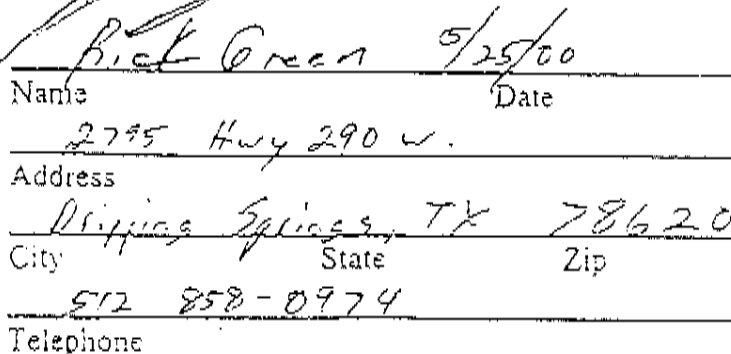 Rick Green 5/25/00
Name Date
2795 Hwy 290 W.
Address
Dripping Springs, TX 78620
City State Zip
512 858-0974
Telephone